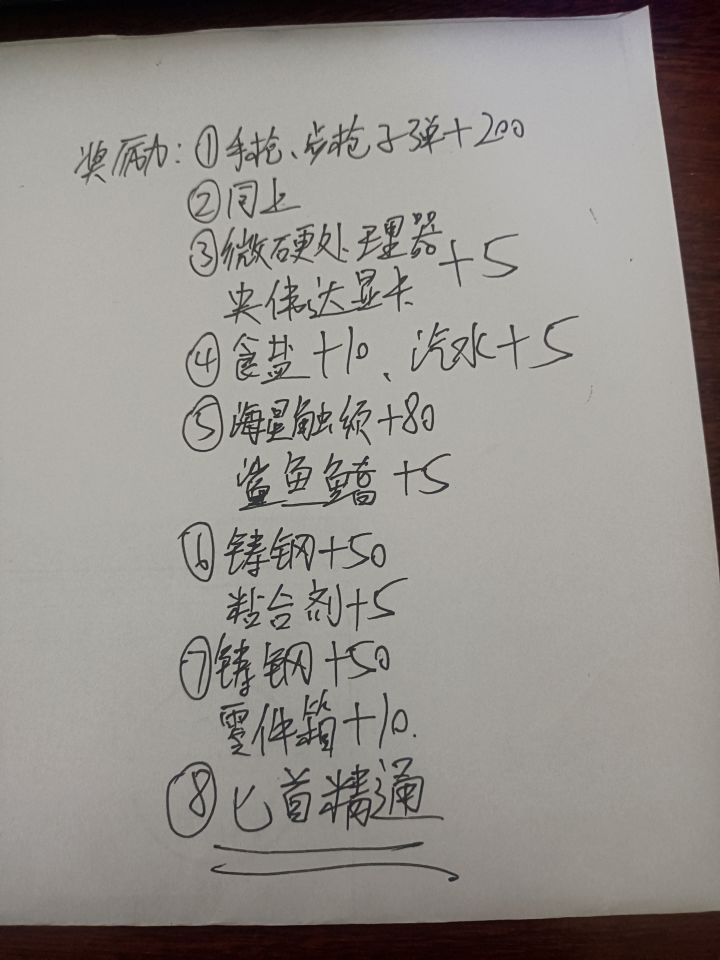 奖励：①手枪、步枪子弹+200
②同上
③微硬处理器
央伟达显卡 +5
④食盐+10、汽水+5
⑤海星触须+80
鲨鱼鳍+5
⑥铸钢+50
粘合剂+5
⑦铸钢+50
零件箱+10.
⑧匕首精通